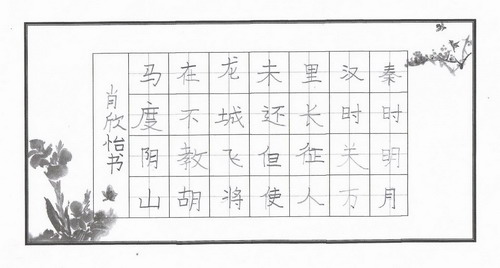 秦时明月
汉时关万
里长征人
未还但使
龙城飞将
在不教胡
马度阴山
肖欣怡书